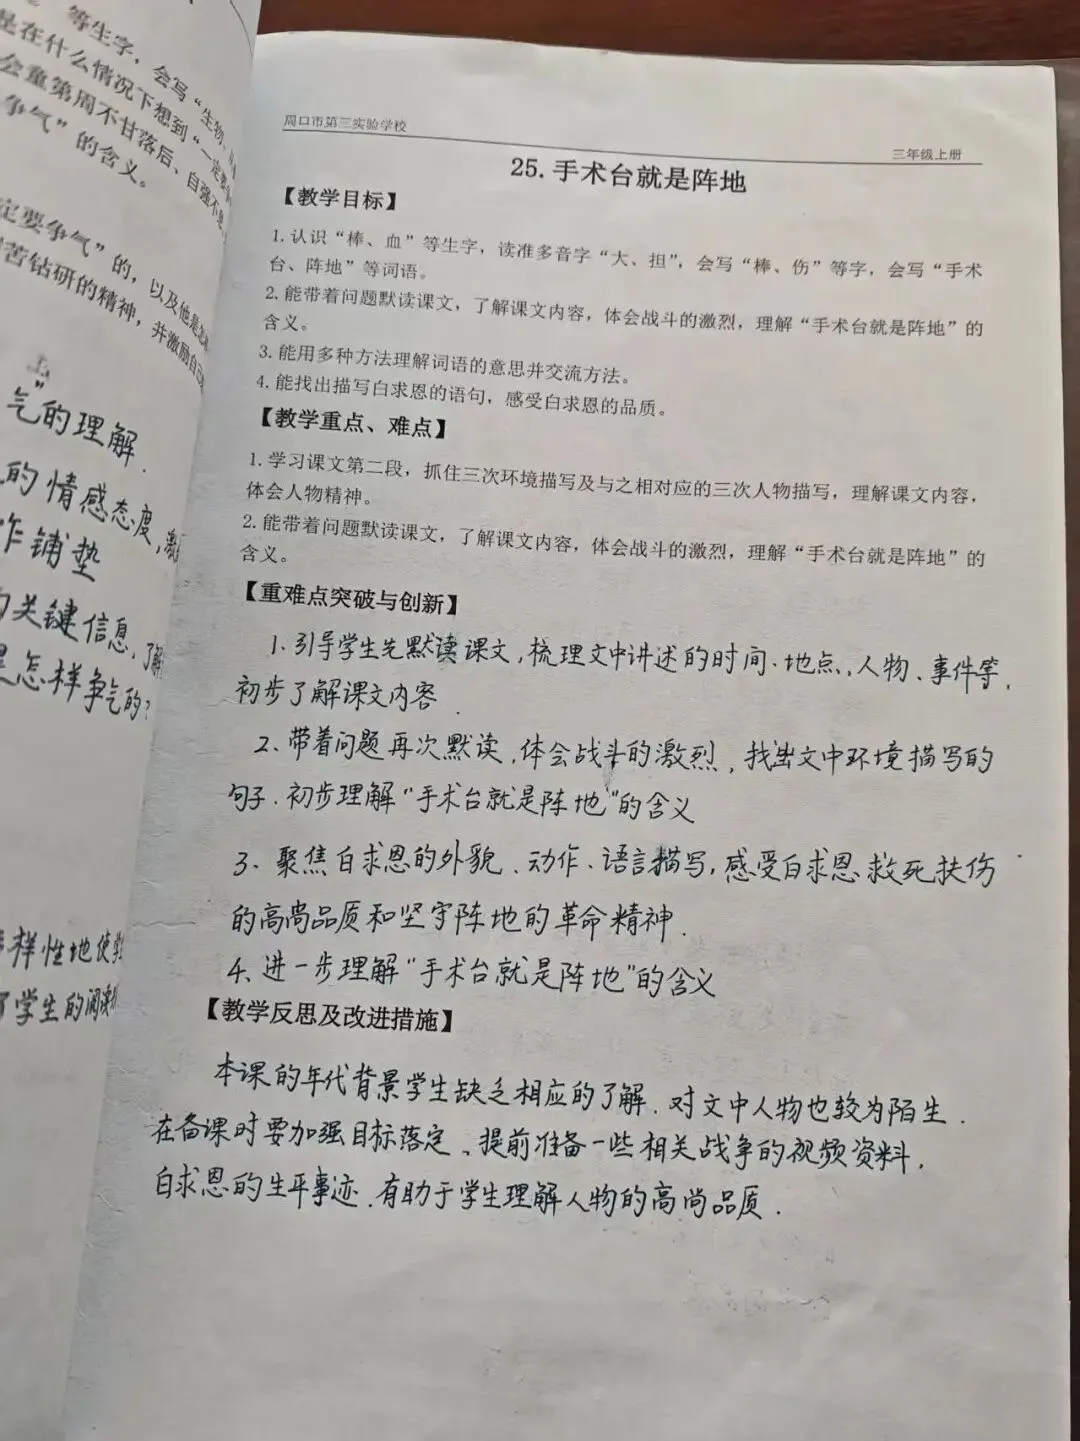 等生字，会写“生物、
是在什么情况下想到“一定要
会童第周不甘落后、自强不息
争气”的含义。
定要争气”的，以及他是怎
苦钻研的精神，并激励自己
气”的理解.
的情感态度,激
作铺垫
关键信息,了解
是怎样争气的?
样性地使
了学生的阅读
周口市第三实验学校
三年级上册
25.手术台就是阵地
【教学目标】
1.认识“棒、血”等生字，读准多音字“大、担”，会写“棒、伤”等字，会写“手术
台、阵地”等词语。
2.能带着问题默读课文，了解课文内容，体会战斗的激烈，理解“手术台就是阵地”的
含义。
3.能用多种方法理解词语的意思并交流方法。
4.能找出描写白求恩的语句，感受白求恩的品质。
【教学重点、难点】
1.学习课文第二段，抓住三次环境描写及与之相对应的三次人物描写，理解课文内容，
体会人物精神。
2.能带着问题默读课文，了解课文内容，体会战斗的激烈，理解“手术台就是阵地”的
含义。
【重难点突破与创新】
1.引导学生先默读课文,梳理文中讲述的时间.地点,人物、事件等,
初步了解课文内容.
2、带着问题再次默读,体会战斗的激烈,找出文中环境描写的
句子.初步理解“手术台就是阵地”的含义
3、聚焦白求恩的外貌、动作、语言描写,感受白求恩救死扶伤
的高尚品质和坚守阵地的革命精神.
4、进一步理解“手术台就是阵地”的含义
【教学反思及改进措施】
本课的年代背景学生缺乏相应的了解.对文中人物也较为陌生.
在备课时要加强目标落定、提前准备一些相关战争的视频资料,
白求恩的生平事迹.有助于学生理解人物的高尚品质.